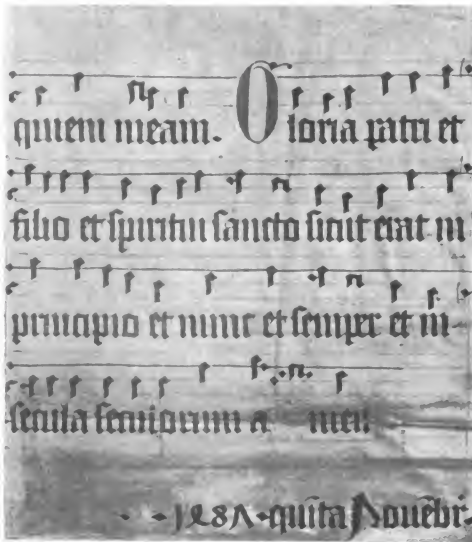 quiem meam. Gloria patri et
filio et spiritui sancto sicut erat in
principio et nunc et semper et in
secula seculorum a men.
· 1487 · quīta Nouēbr.